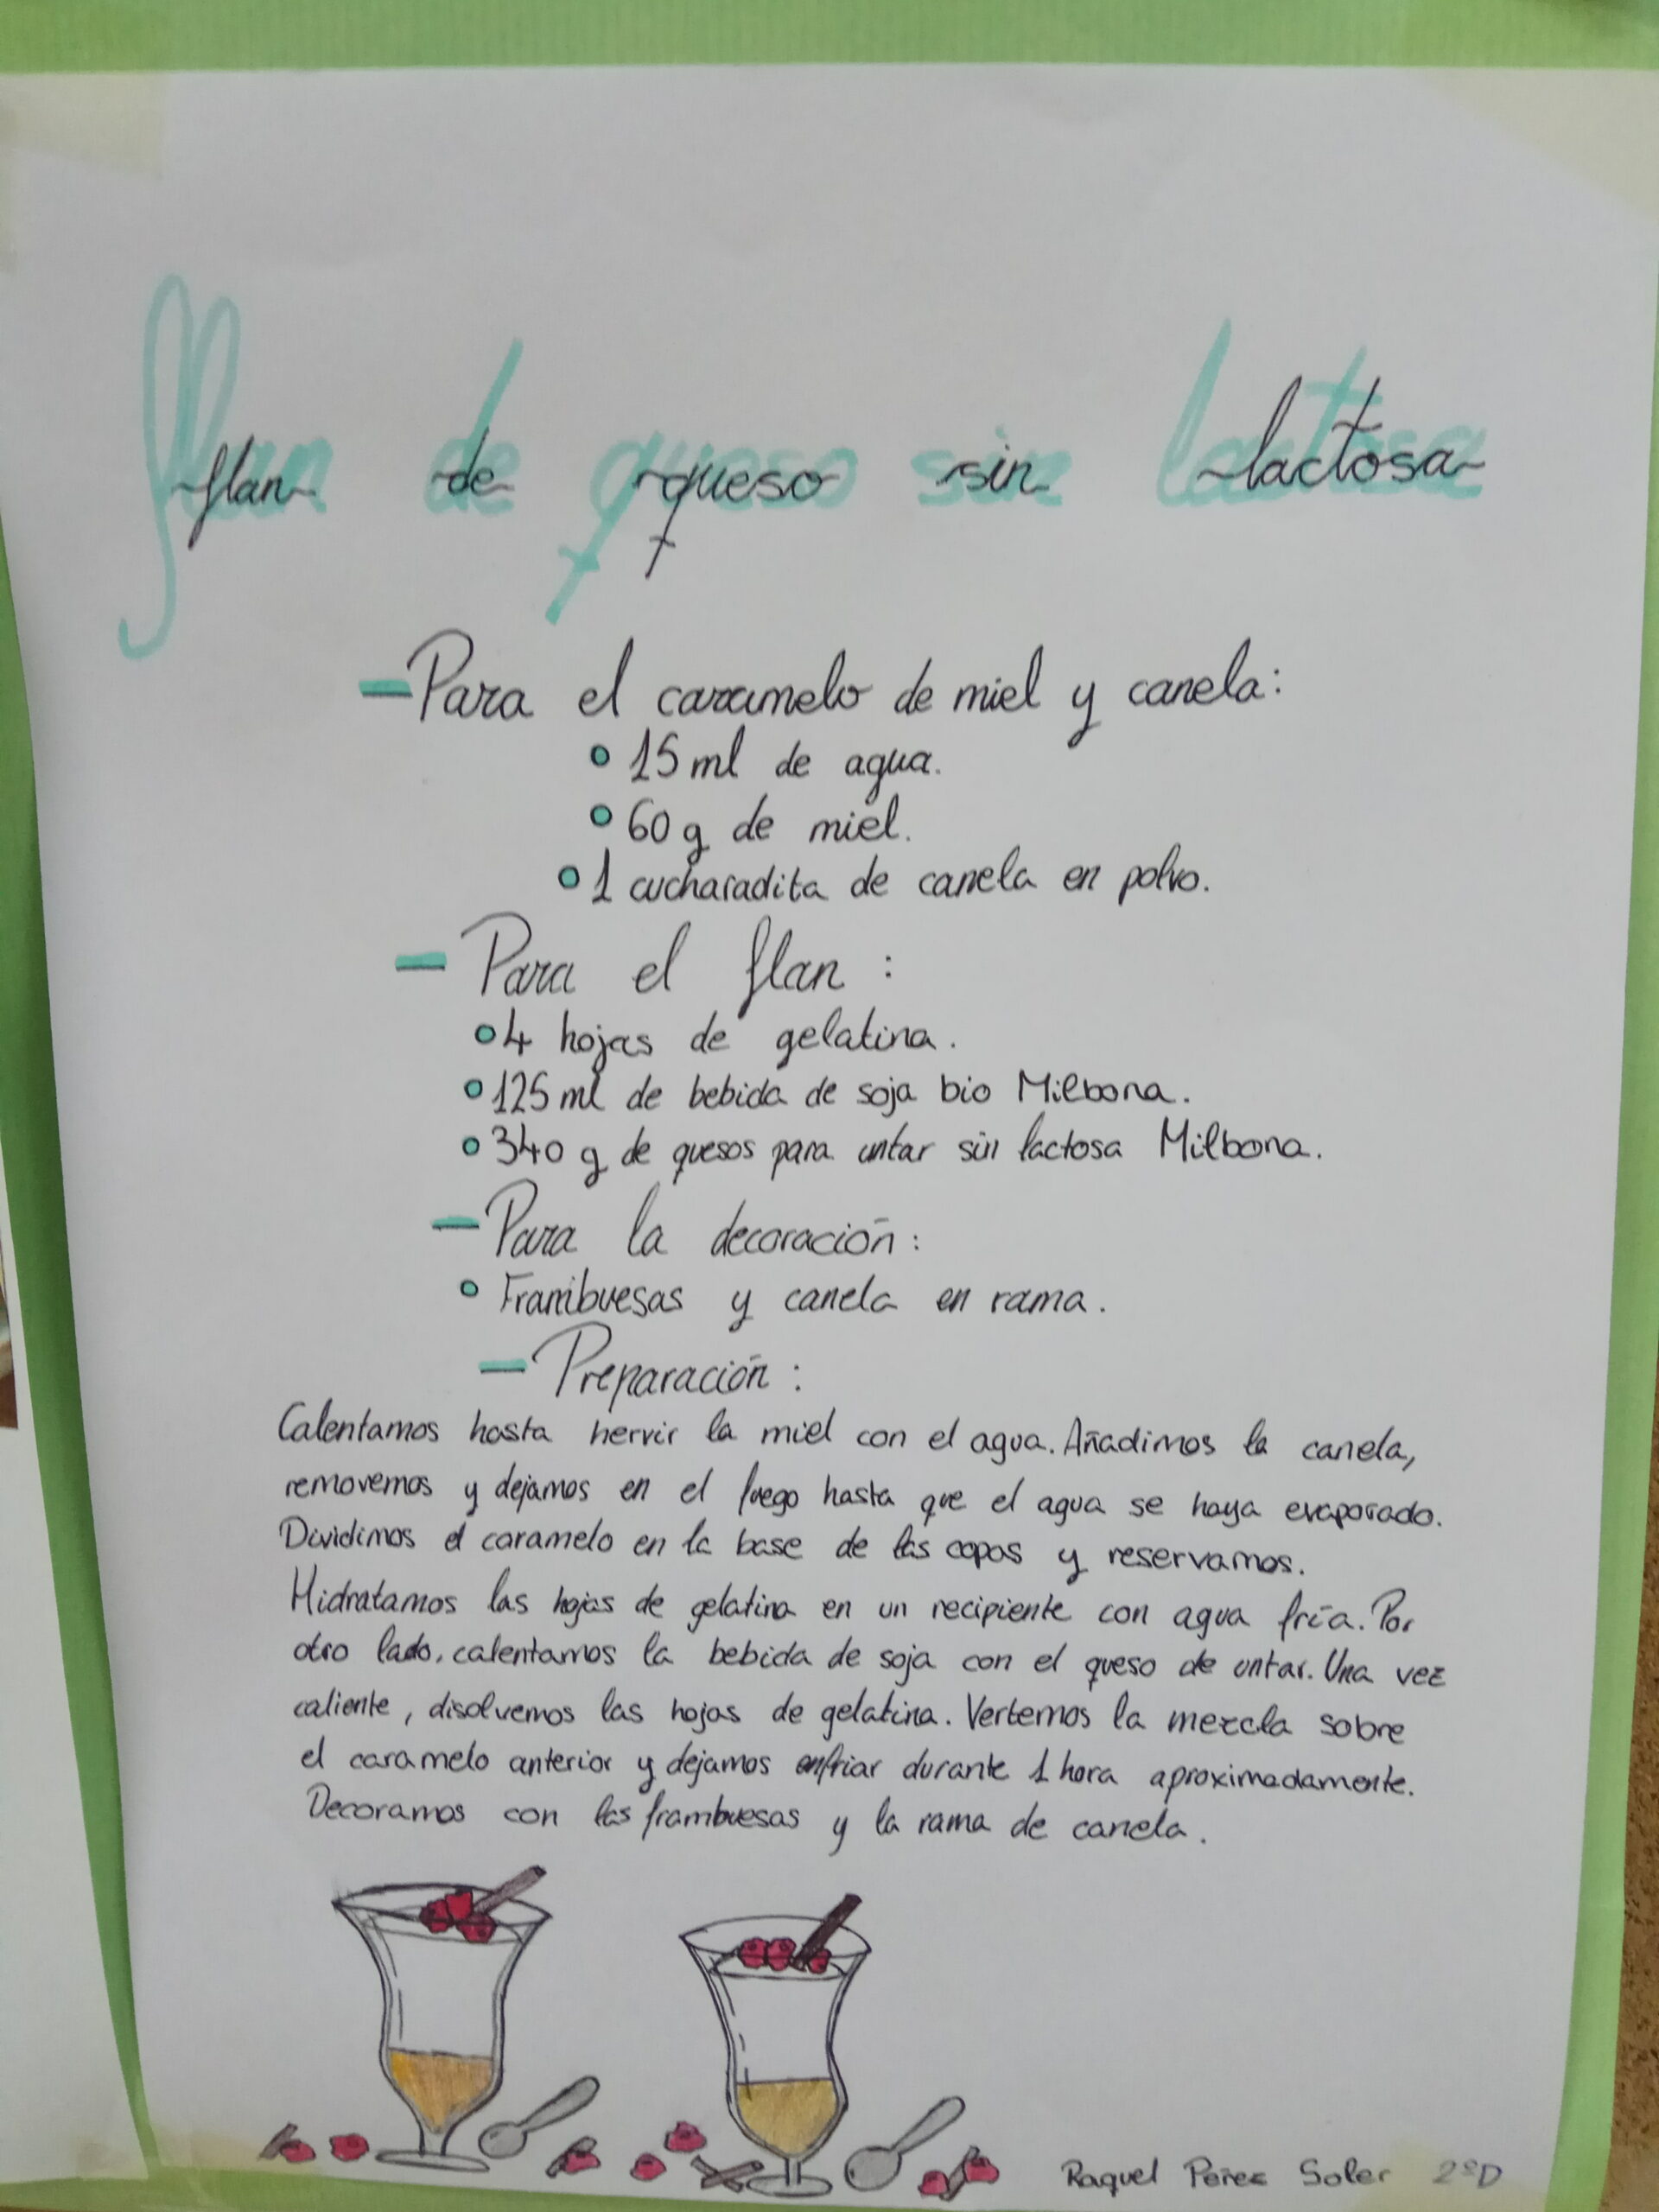 flan de queso sin lactosa
- Para el caramelo de miel y canela:
• 15 ml de agua.
• 60 g de miel.
• 1 cucharadita de canela en polvo.
- Para el flan :
• 4 hojas de gelatina.
• 125 ml de bebida de soja bio Milbona.
• 340 g de quesos para untar sin lactosa Milbona.
- Para la decoración:
• Frambuesas y canela en rama.
- Preparación :
Calentamos hasta hervir la miel con el agua. Añadimos la canela,
removemos y dejamos en el fuego hasta que el agua se haya evaporado.
Dividimos el caramelo en la base de las copas y reservamos.
Hidratamos las hojas de gelatina en un recipiente con agua fría. Por
otro lado, calentamos la bebida de soja con el queso de untar. Una vez
caliente, disolvemos las hojas de gelatina. Vertemos la mezcla sobre
el caramelo anterior y dejamos enfriar durante 1 hora aproximadamente.
Decoramos con las frambuesas y la rama de canela.
Raquel Pérez Soler 2ºD